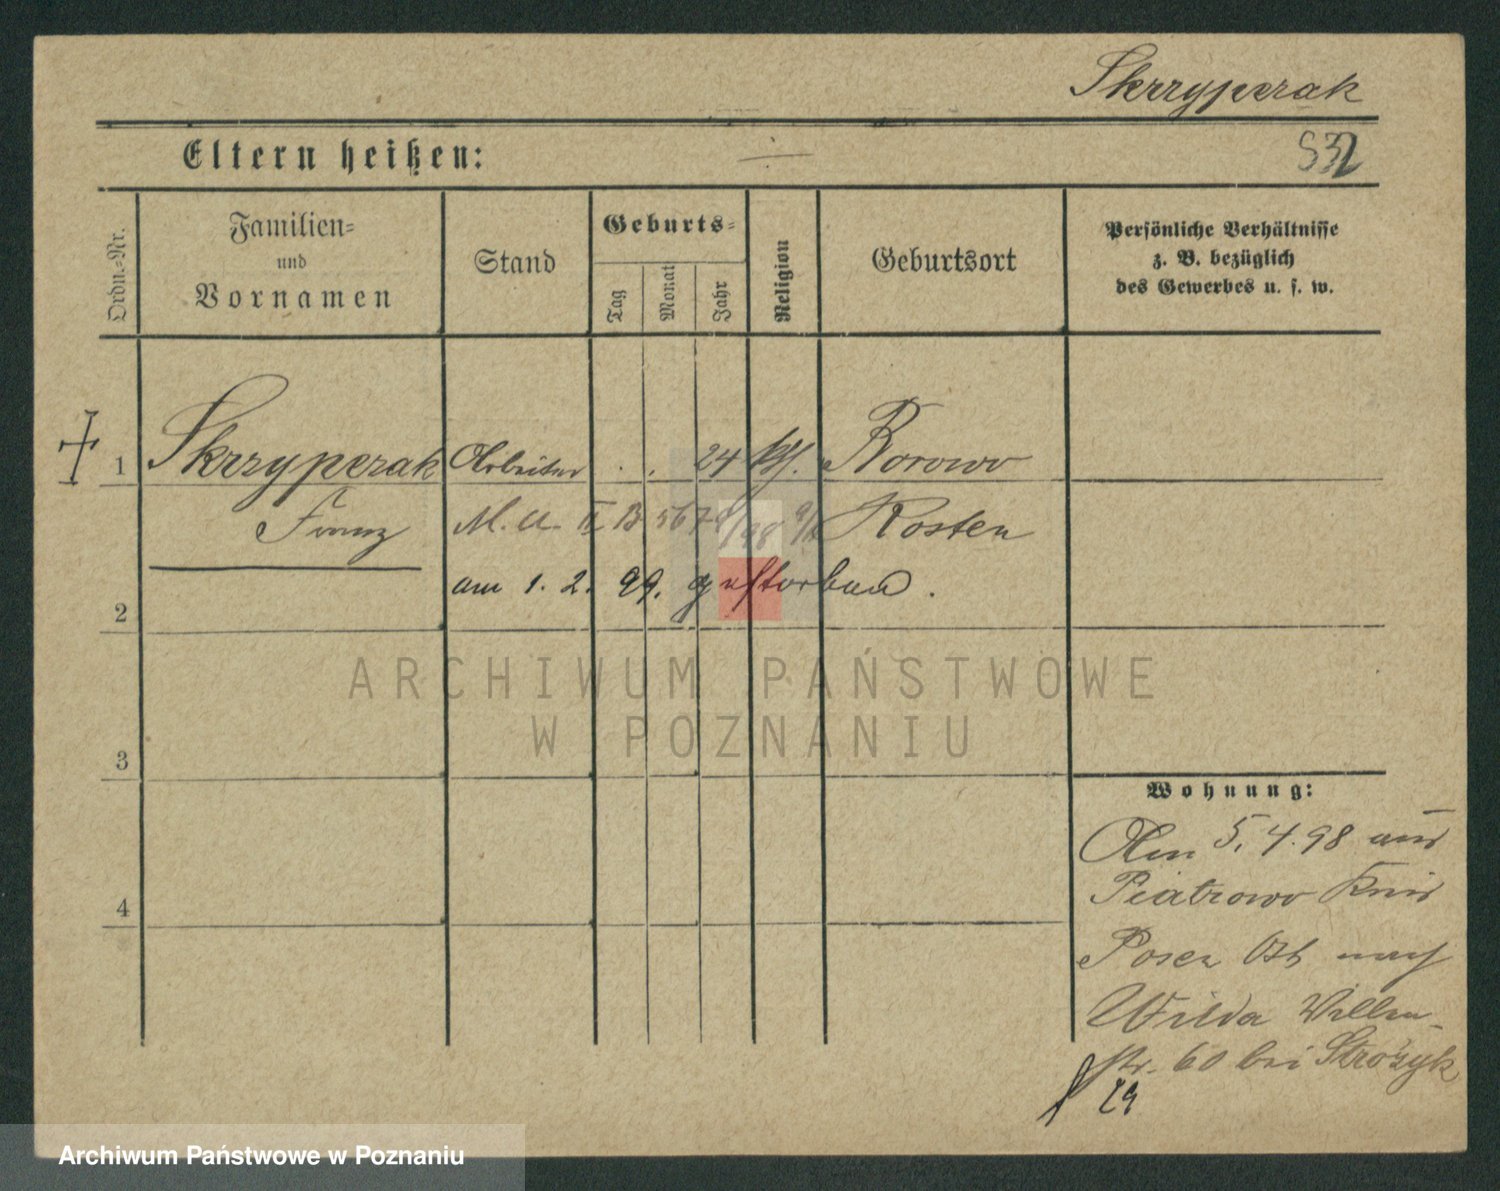 Skrzypczak
Eltern heißen:
532
Ordn.-Nr.
Familien-
und
Vornamen
Stand
Geburts-
Tag
Monat
Jahr
Religion
Geburtsort
Persönliche Verhältnisse
z. B. bezüglich
des Gewerbes u. s. w.
1 Skrzypczak Arbeiter . . 24 kth. Borowo
Franz M. A. II B 567 /98 Kosten
am 1. 2. 99. gestorben.
2
ARCHIWUM PAŃSTWOWE
W POZNANIU
3
Wohnung:
Am 5. 4. 98 aus
Piatrowo Kreis
4
Posen Ost nach
Wilda Wallen-
str. 60 bei Strożyk
Archiwum Państwowe w Poznaniu